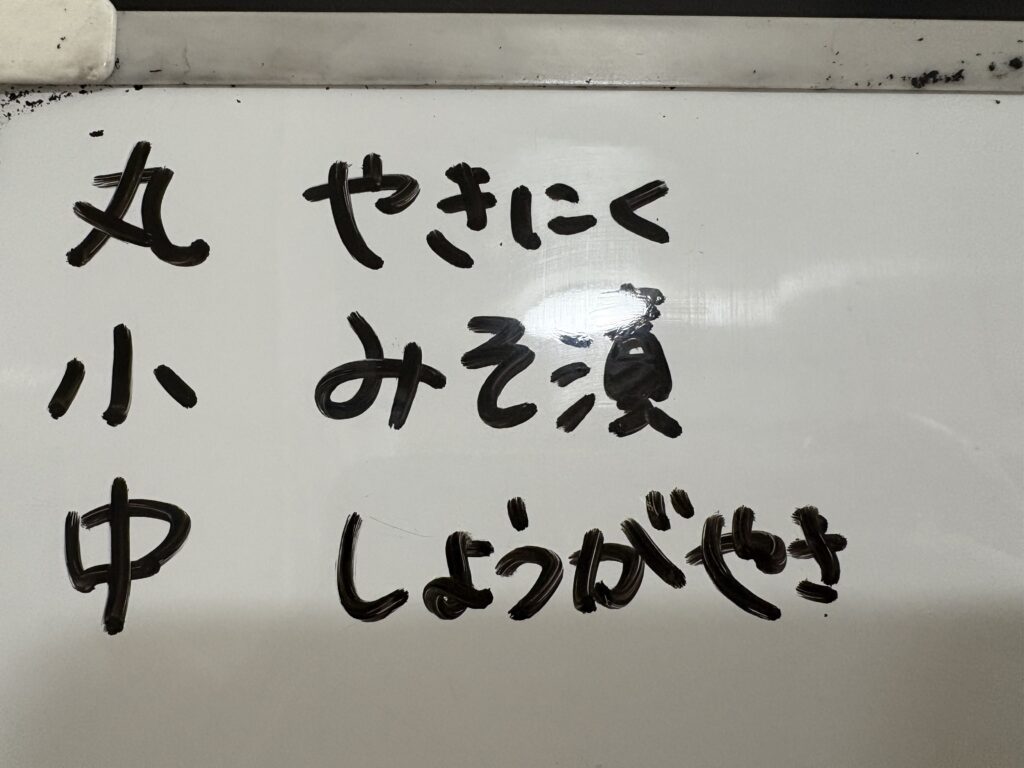 丸 やきにく
小 みそ漬
中 しょうがやき